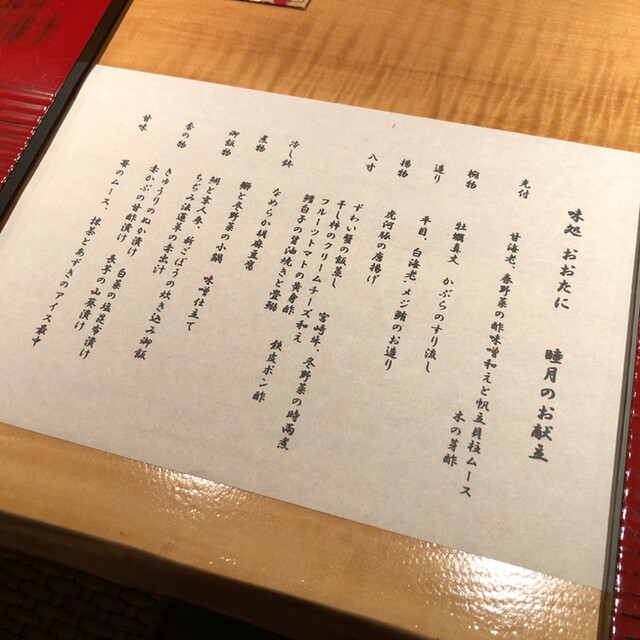 味処 おおたに 睦月のお献立
先付 甘海老、春野菜の酢味噌和えと帆立貝柱ムース
木の芽酢
椀物 牡蠣真丈 かぶらのすり流し
造り 平目、白海老、メジ鮪のお造り
揚物 虎河豚の唐揚げ
八寸 ずわい蟹の飯蒸し 宮崎牛、冬野菜の時雨煮
干し柿のクリームチーズ和え
フルーツトマトの黄身酢
鱈白子の醤油焼きと畳鰯 鉄皮ポン酢
冷し鉢 なめらか胡麻豆富
煮物 鰤と冬野菜の小鍋 味噌仕立て
御飯物 鯛と京人参、新ごぼうの炊き込み御飯
ちぢみ法蓮草の赤出汁
香の物 きゅうりのぬか漬け 白菜の塩昆布漬け
赤かぶの甘酢漬け 長芋の山葵漬け
甘味 苺のムース、抹茶とあずきのアイス最中